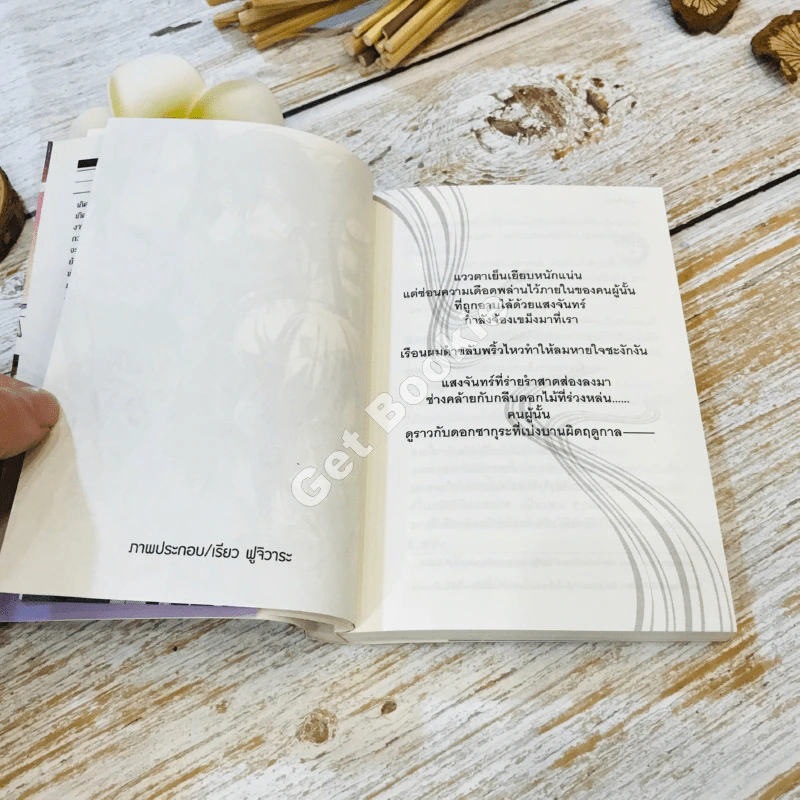 ภาพประกอบ/เรียว ฟูจิวาระ
แววตาเย็นเยียบหนักแน่น
แต่ซ่อนความเดือดพล่านไว้ภายในของคนผู้นั้น
ที่ถูกอาบไล้ด้วยแสงจันทร์
กำลังจ้องเขม็งมาที่เรา
เรือนผมดำขลับพริ้วไหวทำให้ลมหายใจชะงักงัน
แสงจันทร์ที่ร่ายรำสาดส่องลงมา
ช่างคล้ายกับกลีบดอกไม้ที่ร่วงหล่น......
คนผู้นั้น
ดูราวกับดอกซากุระที่เบ่งบานผิดฤดูกาล——
Get Bookie